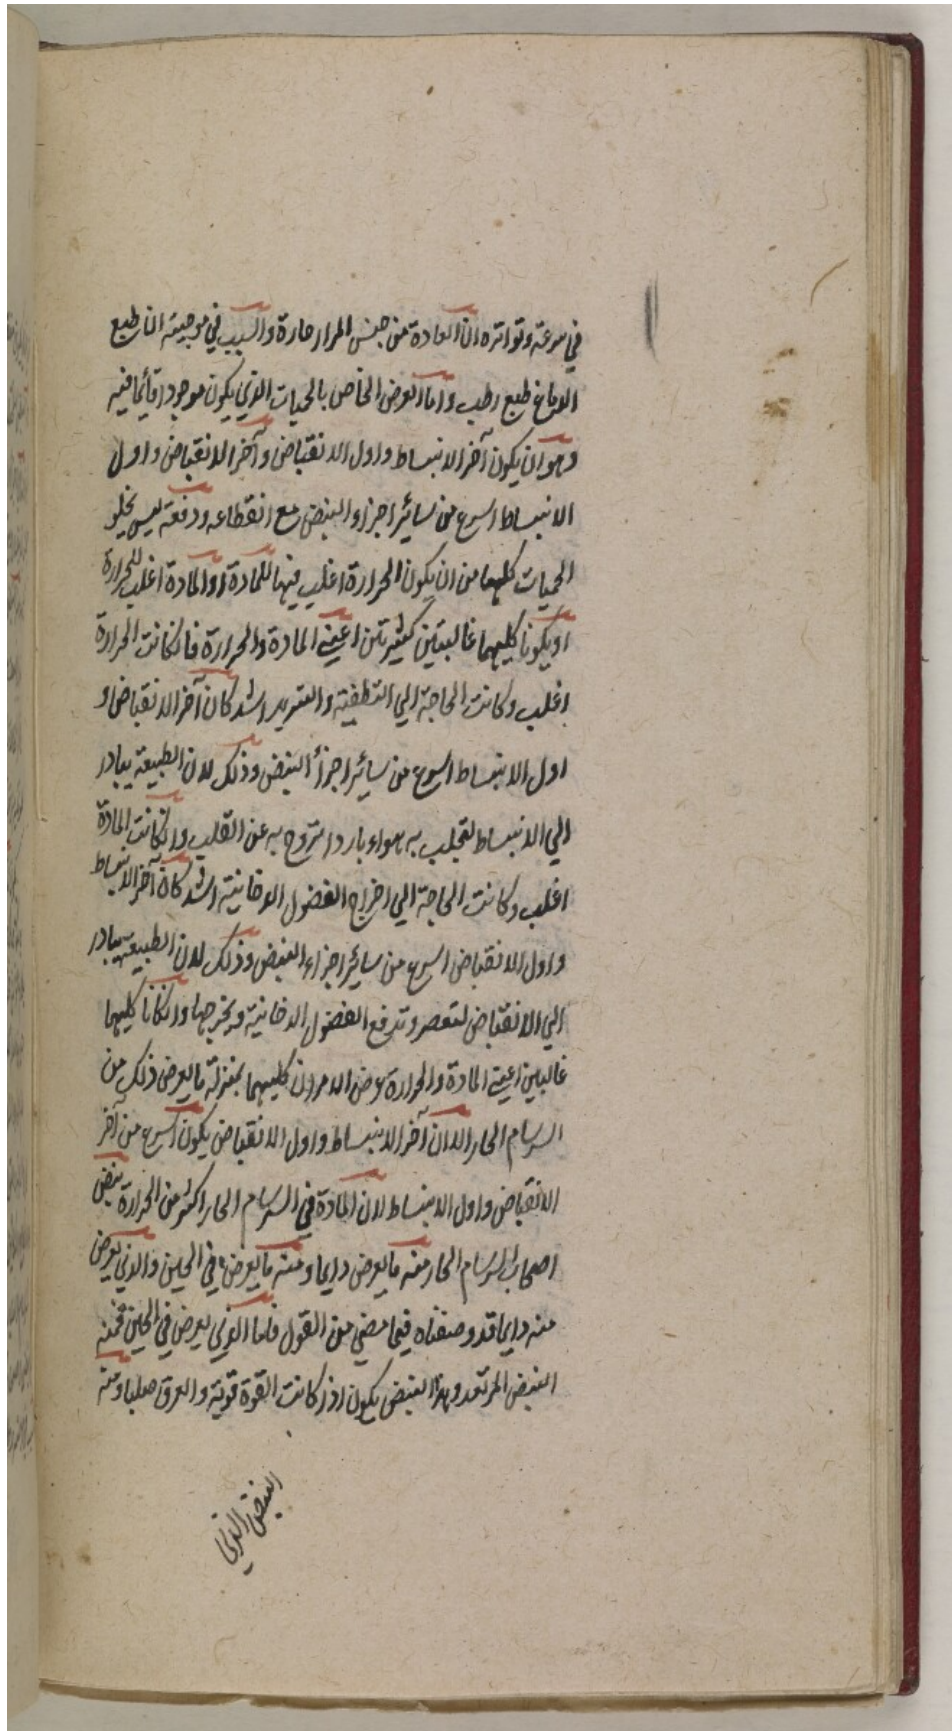 في سرعته وتواتره ان المادة من جنس المرار حارة والسبب في موجيته ان طبع
الدماغ طبع رطب واما العرض الخاص بالحميات الذي يكون موجودا دائما فيه
وهو ان يكون آخر الانبساط واول الانقباض وآخر الانقباض واول
الانبساط اسرع من سائر اجزاء النبض مع انقطاعه ودفعة ليس يخلو
الحميات كلها من ان يكون الحرارة اغلب فيها للمادة او المادة اغلب للحرارة
او يكونا كليهما غالبيتين كثيرتين اعني المادة والحرارة فان كانت الحرارة
اغلب وكانت الحاجة الي التطفية والتبريد اشد كان آخر الانقباض و
اول الانبساط اسرع من سائر اجزأ النبض وذلك لان الطبيعة يبادر
الي الانبساط لتجلب به هواء بارد اتروح به عن القلب وان كانت المادة
اغلب وكانت الحاجة الي اخراج الفضول الدخانية اشد كان آخر الانبساط
واول الانقباض اسرع من سائر اجزاء النبض وذلك لان الطبيعة يبادر
الي الانقباض لتعصر وتدفع الفضول الدخانية ويخرجها وان كانا كليهما
غالبين اعني المادة والحرارة عرض الامران كليهما بمنزلة ما يعرض ذلك من
السرسام الحار الا ان آخر الانبساط واول الانقباض يكون اسرع من آخر
الانقباض واول الانبساط لان المادة في السرسام الحار اكثر من الحرارة نبض
اصحاب السرسام الحار منه ما يعرض دايما ومنه ما يعرض في الحين والذي يعرض
منه دايما قد وصفناه فيما مضي من القول فاما الذي يعرض في الحين فمنه
النبض المرتعد وهذا النبض يكون اذا كانت القوة قوية والعرق صلبا ومنه
النبض الذي